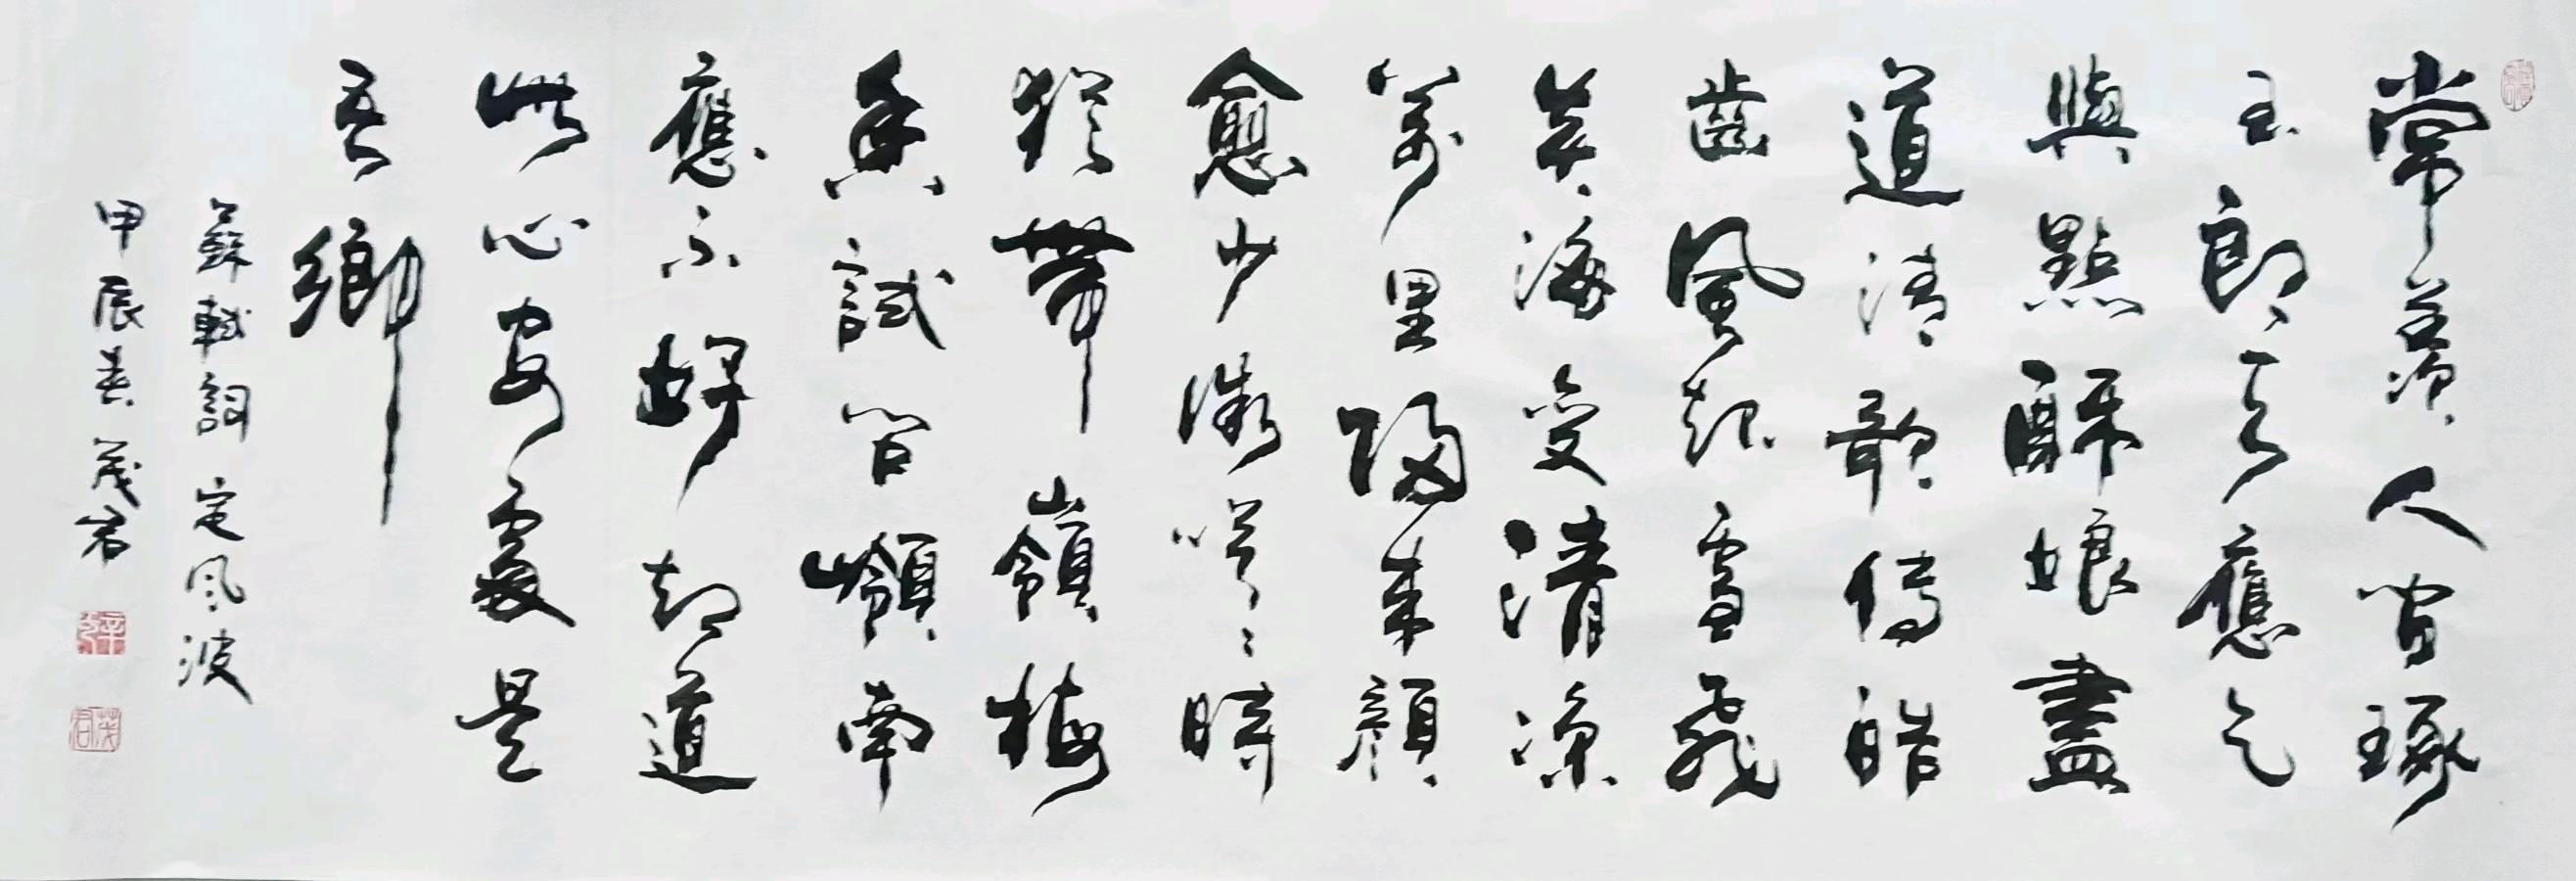 常羨人間琢
玉郎天應乞
與點酥娘盡
道清歌傳皓
齒風起雪飛
炎海變清涼
萬里歸來顏
愈少微咲々時
猶帶嶺梅
香試問嶺南
應不好却道
此心安處是
吾鄉
蘇軾詞 定風波
甲辰春 茂君